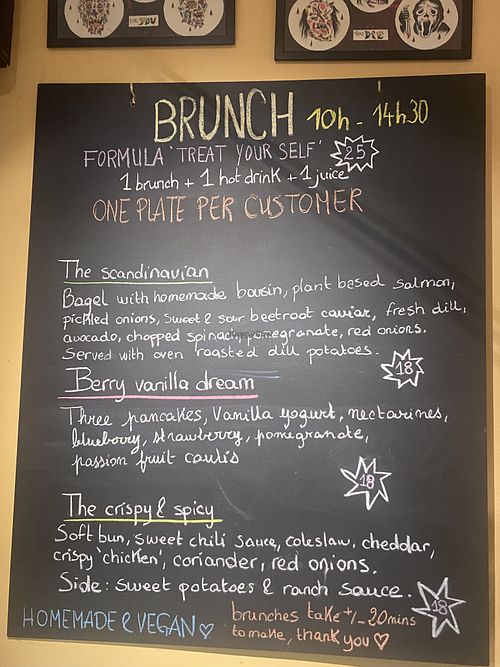 YOU
DIE
BRUNCH 10h - 14h30
FORMULA 'TREAT YOUR SELF' 25
1 brunch + 1 hot drink + 1 juice
ONE PLATE PER CUSTOMER
The scandinavian
Bagel with homemade boursin, plant based salmon,
pickled onions, sweet & sour beetroot caviar, fresh dill,
avocado, chopped spinach, pomegranate, red onions.
Served with oven roasted dill potatoes.
18
Berry vanilla dream
Three pancakes, Vanilla yogurt, nectarines,
blueberry, strawberry, pomegranate,
passion fruit coulis
18
The crispy & spicy
Soft bun, sweet chili sauce, coleslaw, cheddar,
crispy 'chicken', coriander, red onions.
Side: sweet potatoes & ranch sauce.
18
HOMEMADE & VEGAN ♡
brunches take +/- 20mins
to make, thank you ♡